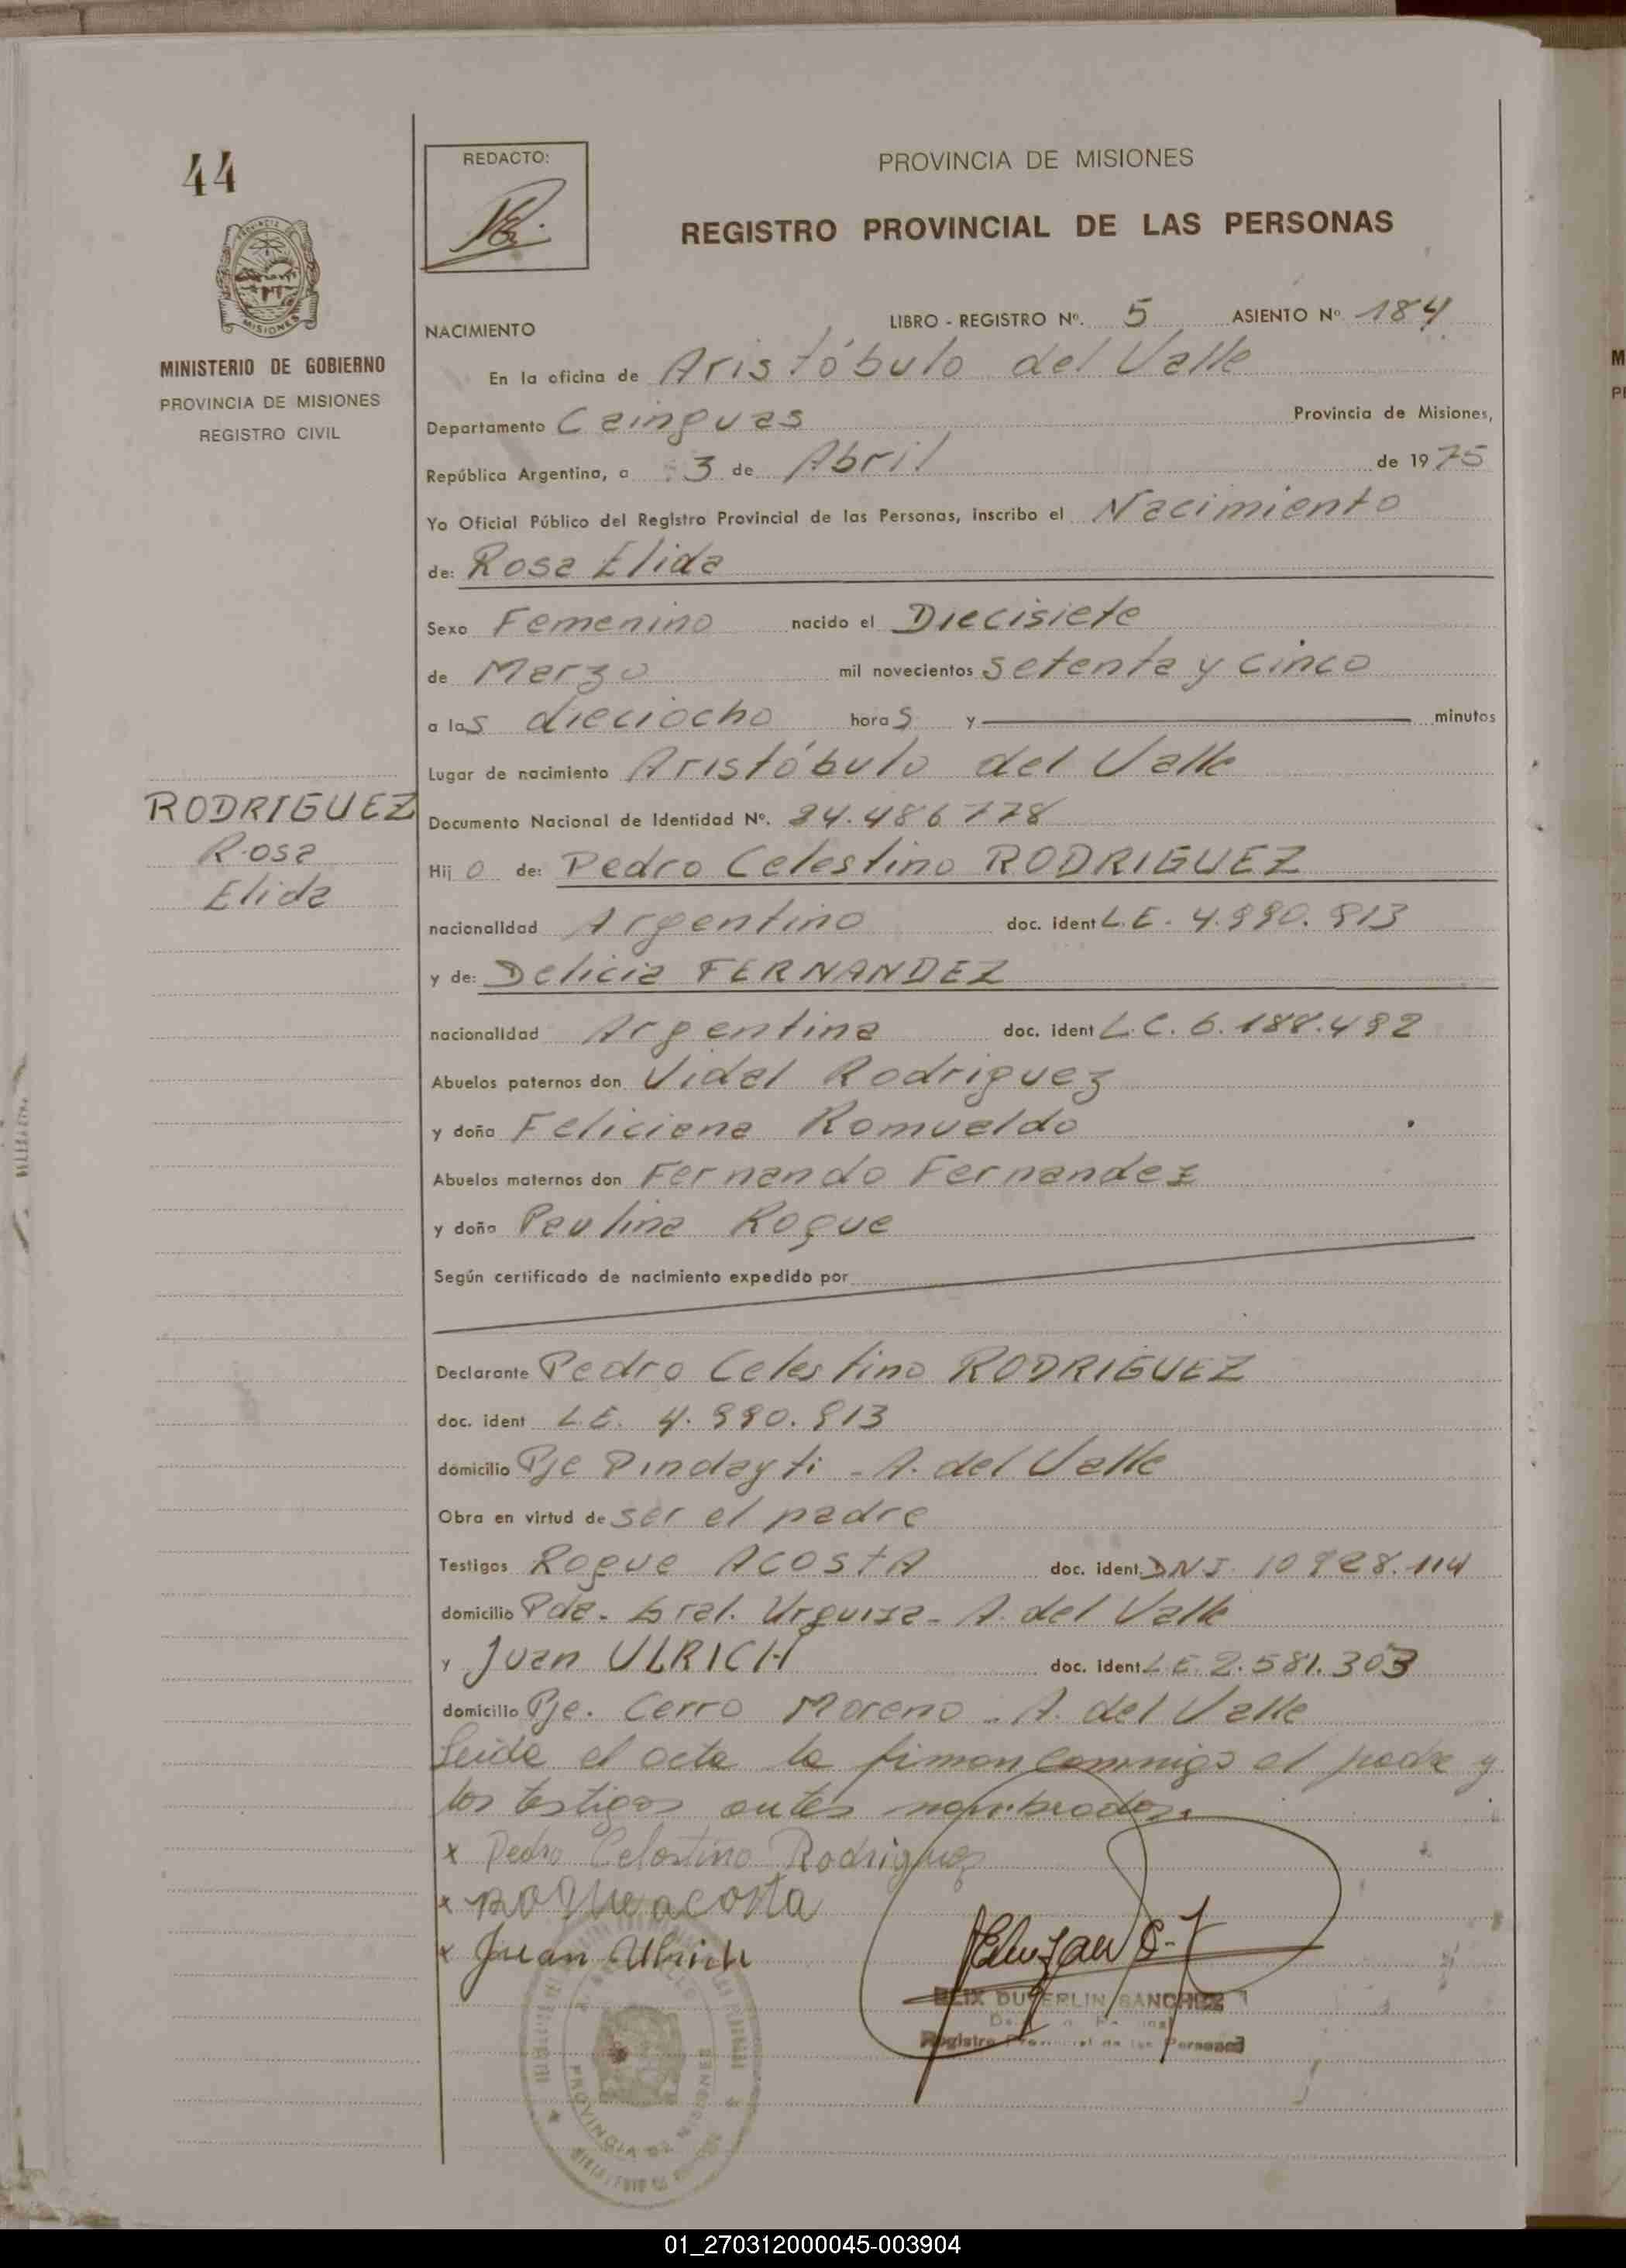 44
REDACTO:
PROVINCIA DE MISIONES
REGISTRO PROVINCIAL DE LAS PERSONAS
MISIONES
MINISTERIO DE GOBIERNO
PROVINCIA DE MISIONES
REGISTRO CIVIL
NACIMIENTO
LIBRO - REGISTRO Nº. 5 ASIENTO Nº 184
En la oficina de Aristóbulo del Valle
Departamento Cainguas Provincia de Misiones,
República Argentina, a 3 de Abril de 1975
Yo Oficial Público del Registro Provincial de las Personas, inscribo el Nacimiento
de: Rosa Elida
Sexo Femenino nacido el Diecisiete
de Marzo mil novecientos setenta y cinco
a las dieciocho horas y minutos
Lugar de nacimiento Aristóbulo del Valle
RODRIGUEZ
Rosa
Elida
Documento Nacional de Identidad Nº. 24.486.778
Hijo de: Pedro Celestino RODRIGUEZ
nacionalidad Argentino doc. ident L.E.
y de: Delicia FERNANDEZ
nacionalidad Argentina doc. ident L.C.
Abuelos paternos don Vidal Rodriguez
y doña Feliciana Romualdo
Abuelos maternos don Fernando Fernandez
y doña Paulina Roque
Según certificado de nacimiento expedido por
Declarante Pedro Celestino RODRIGUEZ
doc. ident L.E.
domicilio Pje Pindayti - A. del Valle
Obra en virtud de ser el padre
Testigos Roque ACOSTA doc. ident. DNI.
domicilio Pda. Gral. Urquiza - A. del Valle
y Juan ULRICH doc. ident. L.E. 2.581.303
domicilio Pje. Cerro Moreno - A. del Valle
Leida el acta la firman conmigo el padre y
los testigos antes nombrados.
x Pedro Celestino Rodriguez
x roque acosta
x Juan Ulrich
SANCHEZ
Registro de las Personas
PROVINCIA DE MISIONES
01_270312000045-003904